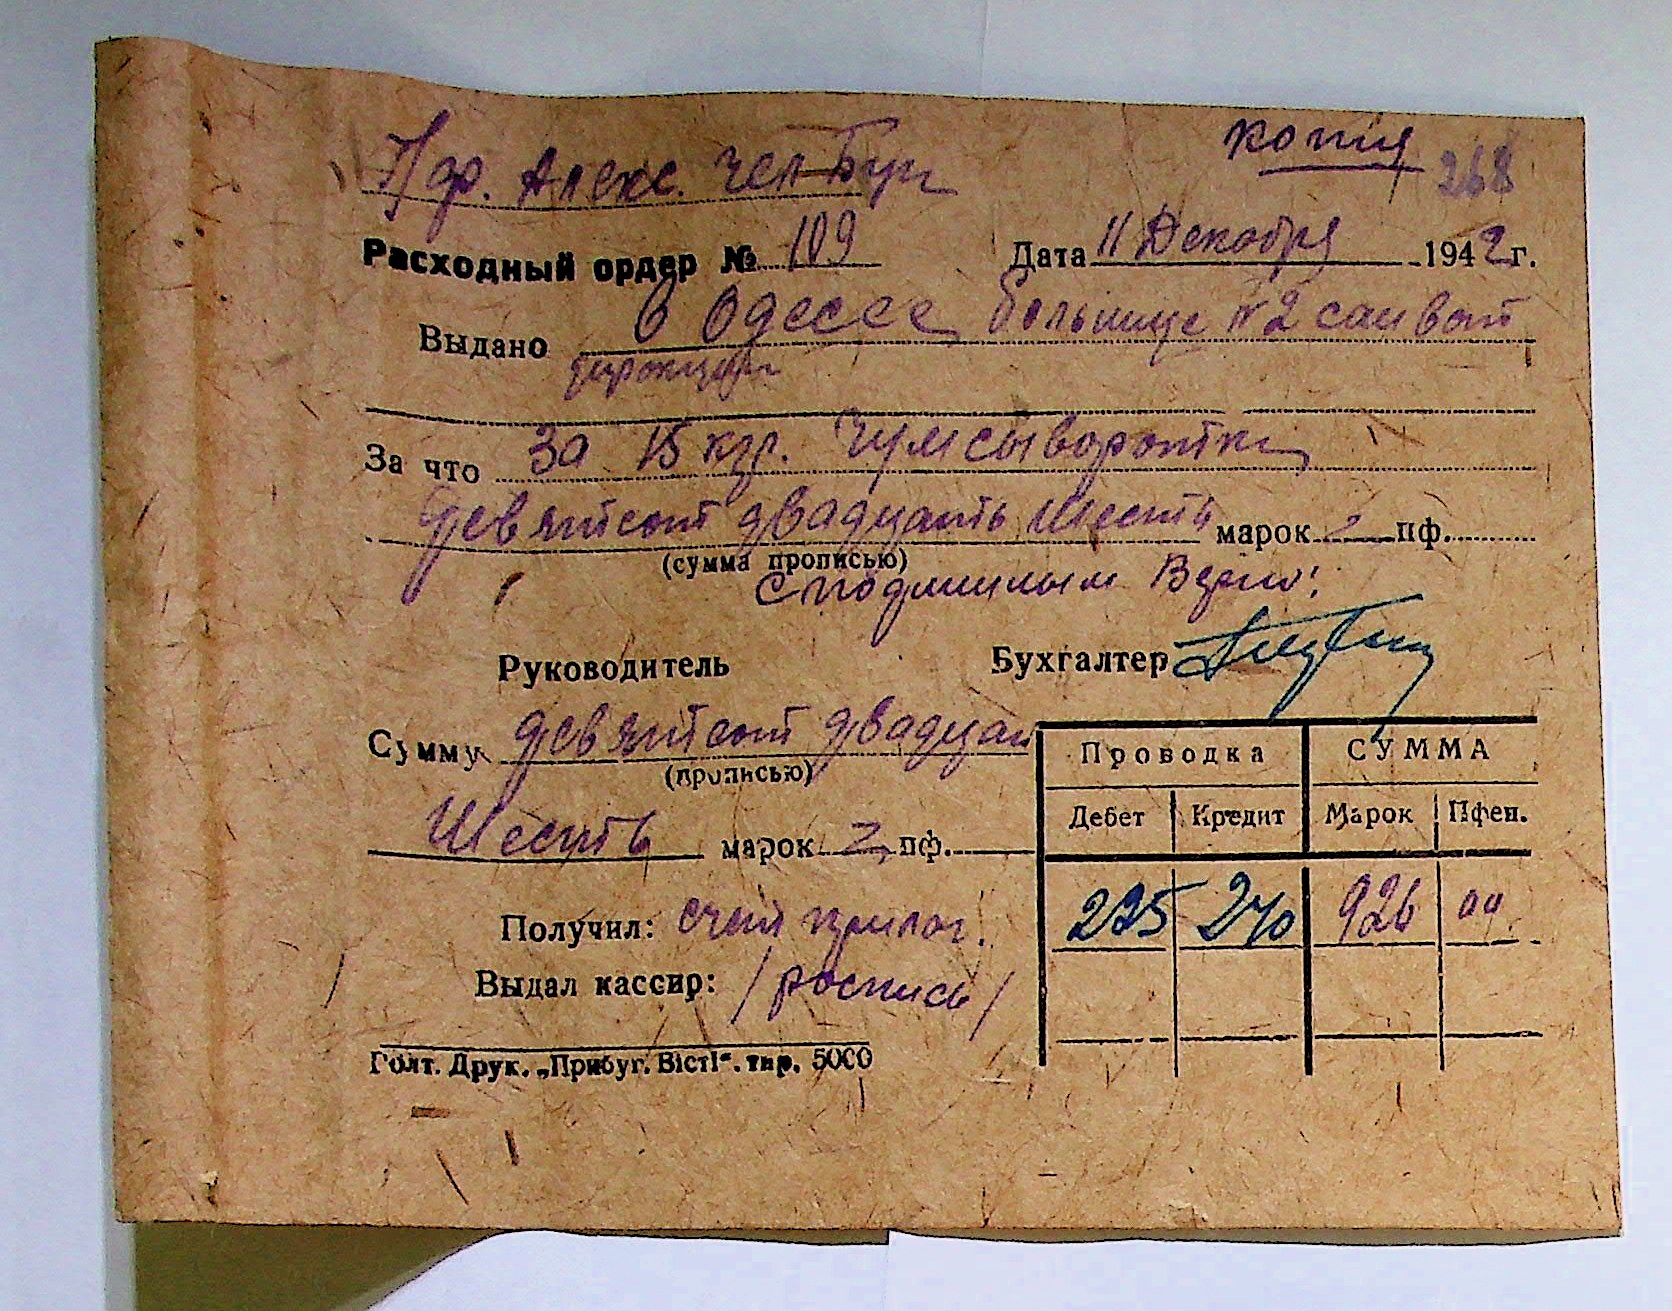 копия
268
Алекс.
Расходный ордер № 109 Дата 11 Декабря 1942 г.
Выдано в Одессе больнице №2
За что за 15 кгр. Чумсыворотки
девятсот двадцать шесть марок — пф.
(сумма прописью)
С подлинным Верно!
Руководитель Бухгалтер
Сумму девятсот двадцат
(прописью)
Шесть марок — пф.
Проводка СУММА
Дебет Кредит Марок Пфен.
225 240 926 00
Получил: счет прилог.
Выдал кассир: /роспись/
Голт. Друк. „Прибуг. Вісті“. тир. 5000